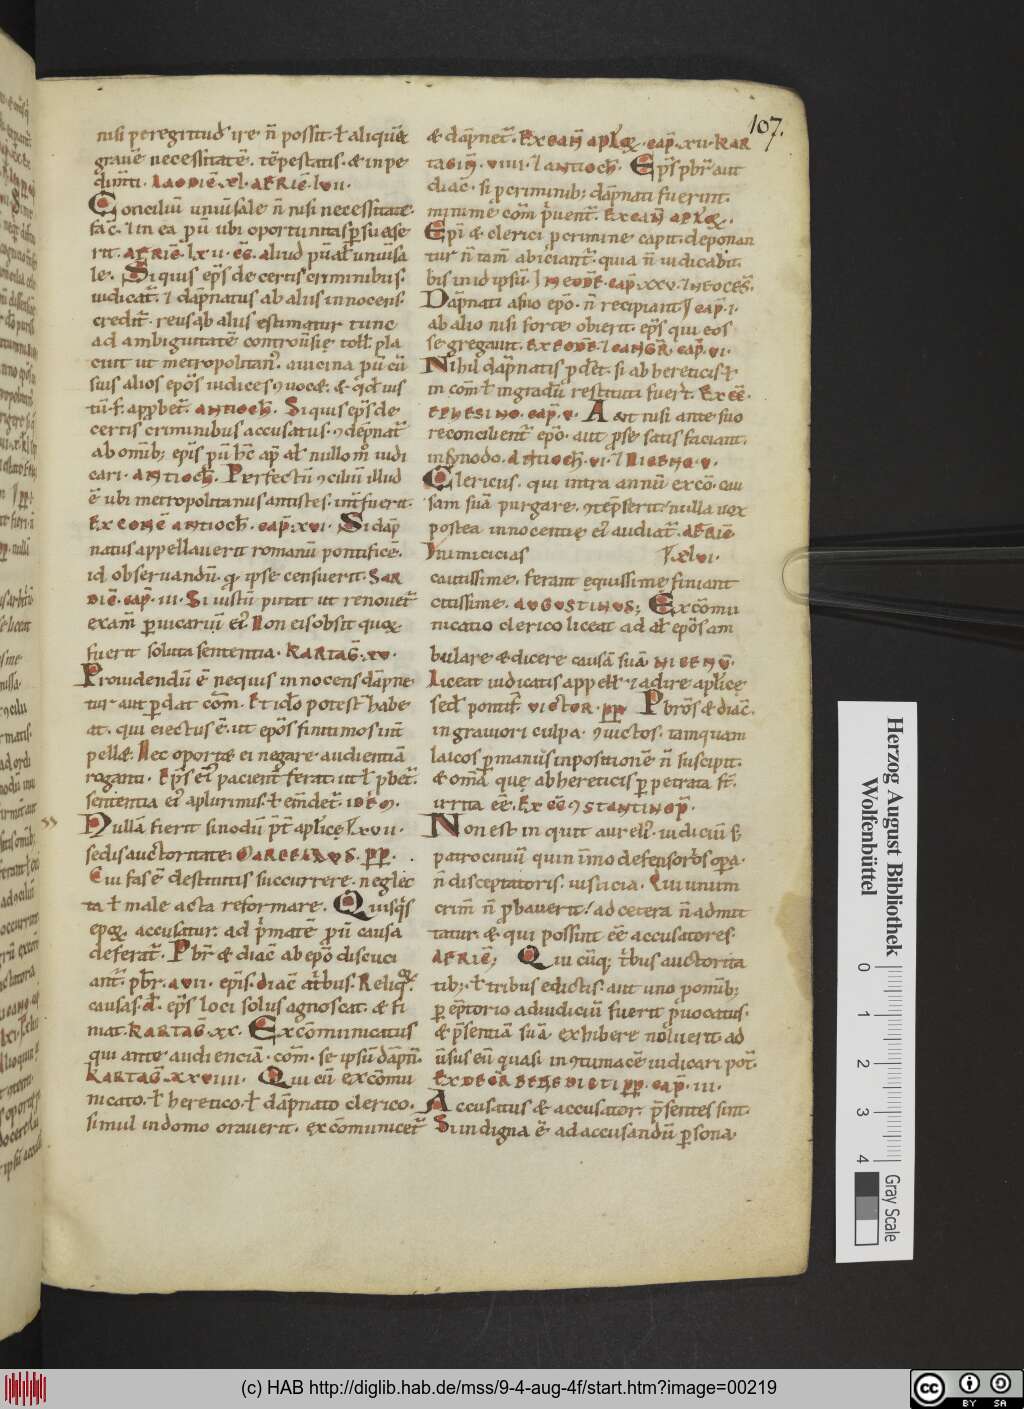 107.
nisi peregritud' ire n̄ possit. ł aliquā
grauē necessitatē. tēpestatis. & in pe
dim̄ti. LAODIC̄. XL. AFRIC̄. LVII.
Conciliū uniūsale n̄ nisi necessitate
fac̄. in ea pū ubi oportunitas p̄suase
rit. AFRIC̄. LXVII. aliud uniūsa
le. Siquis ep̄s de certis criminibus.
iudicat̄. & dāpnatus ab aliis innocens.
credit̄. reus ab aliis estimatur tunc
ad ambiguitatē controūsię toll̄ pla
cuit ut metropolitan' auicina pū cū
suis alios ep̄os iudices
ANTIOCH̄. Siquis ep̄s de
certis criminibus accusatus. ꝯdēpnat̄
ab om̄ib; ep̄is
cari. ANTIOCH̄. Perfectū ꝯciliū illud
ē ubi metropolitanus antistes. int̄fuerit.
EX CONC̄ ANTIOCH̄. CAP̄. XVI. Si dāp
natus appellauerit romanū pontificē.
id obseruandū. qđ ipse censuerit. SAR
DIC̄. CAP̄. III. Si iustū putat ut renouet̄
exam̄ Non eis obsit
fuerit soluta sententia. KARTAḠ. XV.
Prouidendū ē nequis innocens dāpne
tur aut p̄dat com̄. Et ideo potest habe
at. qui eiectus ē. ut ep̄os finitimos int̄
pellæ. Nec oportæ ei negare audientiā
roganti. Ep̄s
sententia IDĒ
Nullā fieri sinodū pt̄ aplicę
sedis auctoritate. PP.
Cui fas ē destitutis succurrere. neglec
ta ł male acta reformare. Quisqs
accusatur. ad p̄matē pū causa
deferat̄. Pbr̄ & diac̄ ab ep̄o discuci
ant̄. pbr̄. AVII. ep̄is. diac̄ Reliq̄
causas. ep̄s loci solus agnoscat. & fi
niat. KARTAḠ. XX. Excōmunicatus
qui ante audienciā. com̄. se ipsū dāpn̄.
KARTAḠ. XXVIIII. Qui cū excōmu
nicato. ł heretico. ł dāpnato clerico.
simul in domo orauerit. excōmunicet̄
& dāpnet̄. EX CAN̄ CAP̄. XII. KAR
TAGIN̄. VIIII. & ANTIOCH̄. Ep̄s pbr̄ aut
diac̄. si p criminib; dāpnati fuerint.
minime com̄ p̄uent̄. EX CAN̄
Ep̄i & clerici p crimine capit. deponan
tur n̄ tam̄ abiciant̄. quia n̄ iudicabit
bis in idipsū. CAP̄. XXV.
Dāpnati a suo ep̄o. n̄ recipiant̄ CAP̄. I.
ab alio nisi forte obierit. ep̄s qui eos
segregauit. CAP̄. VI.
Nihil dāpnatis p̄dēt. si ab hereticis
in com̄ ł in gradū restituti fuer̄t.
EPHESINO. CAP̄. V. Aut nisi ante suo
reconcilient̄ ep̄o. aut p̄ se satis faciant.
in synodo. ANTIOCH̄. VI. & NICENO. V.
Clericus. qui intra annū excō. cau
sam suā purgare. ꝯtēpserit. nulla uox
postea innocentię ei' audiat̄. AFRIC̄
Inimicicias XLVI.
cautissime. ferant equissime finiant
citissime. AUGUSTINUS; Excōmu
nicatio clerico liceat ad al' ep̄os am
bulare & dicere causā suā. NICENŪ.
Liceat iudicatis appell̄ & adire aplicę
sed' pontif̄. VICTOR. PP. Pbr̄os & diac̄.
in grauiori culpa. ꝯuictos. tamquam
laicos p̄ manūs inpositionē n̄ suscipit.
& omā. quę ab hereticis p̄petrata st̄.
irrita eē. EX CC̄ ꝯSTANTINOP̄.
Non est inquit aureli'. iudiciū s;
patrociniū quin im̄o defensor̄
n̄ disceptatoris. iusticia. Qui unum
crim̄ n̄ p̄bauerit! ad cetera n̄ admit
tatur. & qui possint eē accusatores.
AFRIC̄; Qui cūq; auctorita
tib;. ł tribus edictis. aut uno p omib;
pēptorio ad iudiciū fuerit p̄uocatus.
& p̄sentiā suā exhibere noluerit. ad
ūsus eū quasi in ꝯtumacē iudicari pot̄.
EX DECR̄ BENEDICTI PP. CAP̄. III.
Accusatus & accusator. p̄sentes sint.
Si indigna ē ad accusandū p̄sona.
Herzog August Bibliothek
Wolfenbüttel
0 1 2 3 4
Gray Scale
(c) HAB http://diglib.hab.de/mss/9-4-aug-4f/start.htm?image=00219
cc BY SA